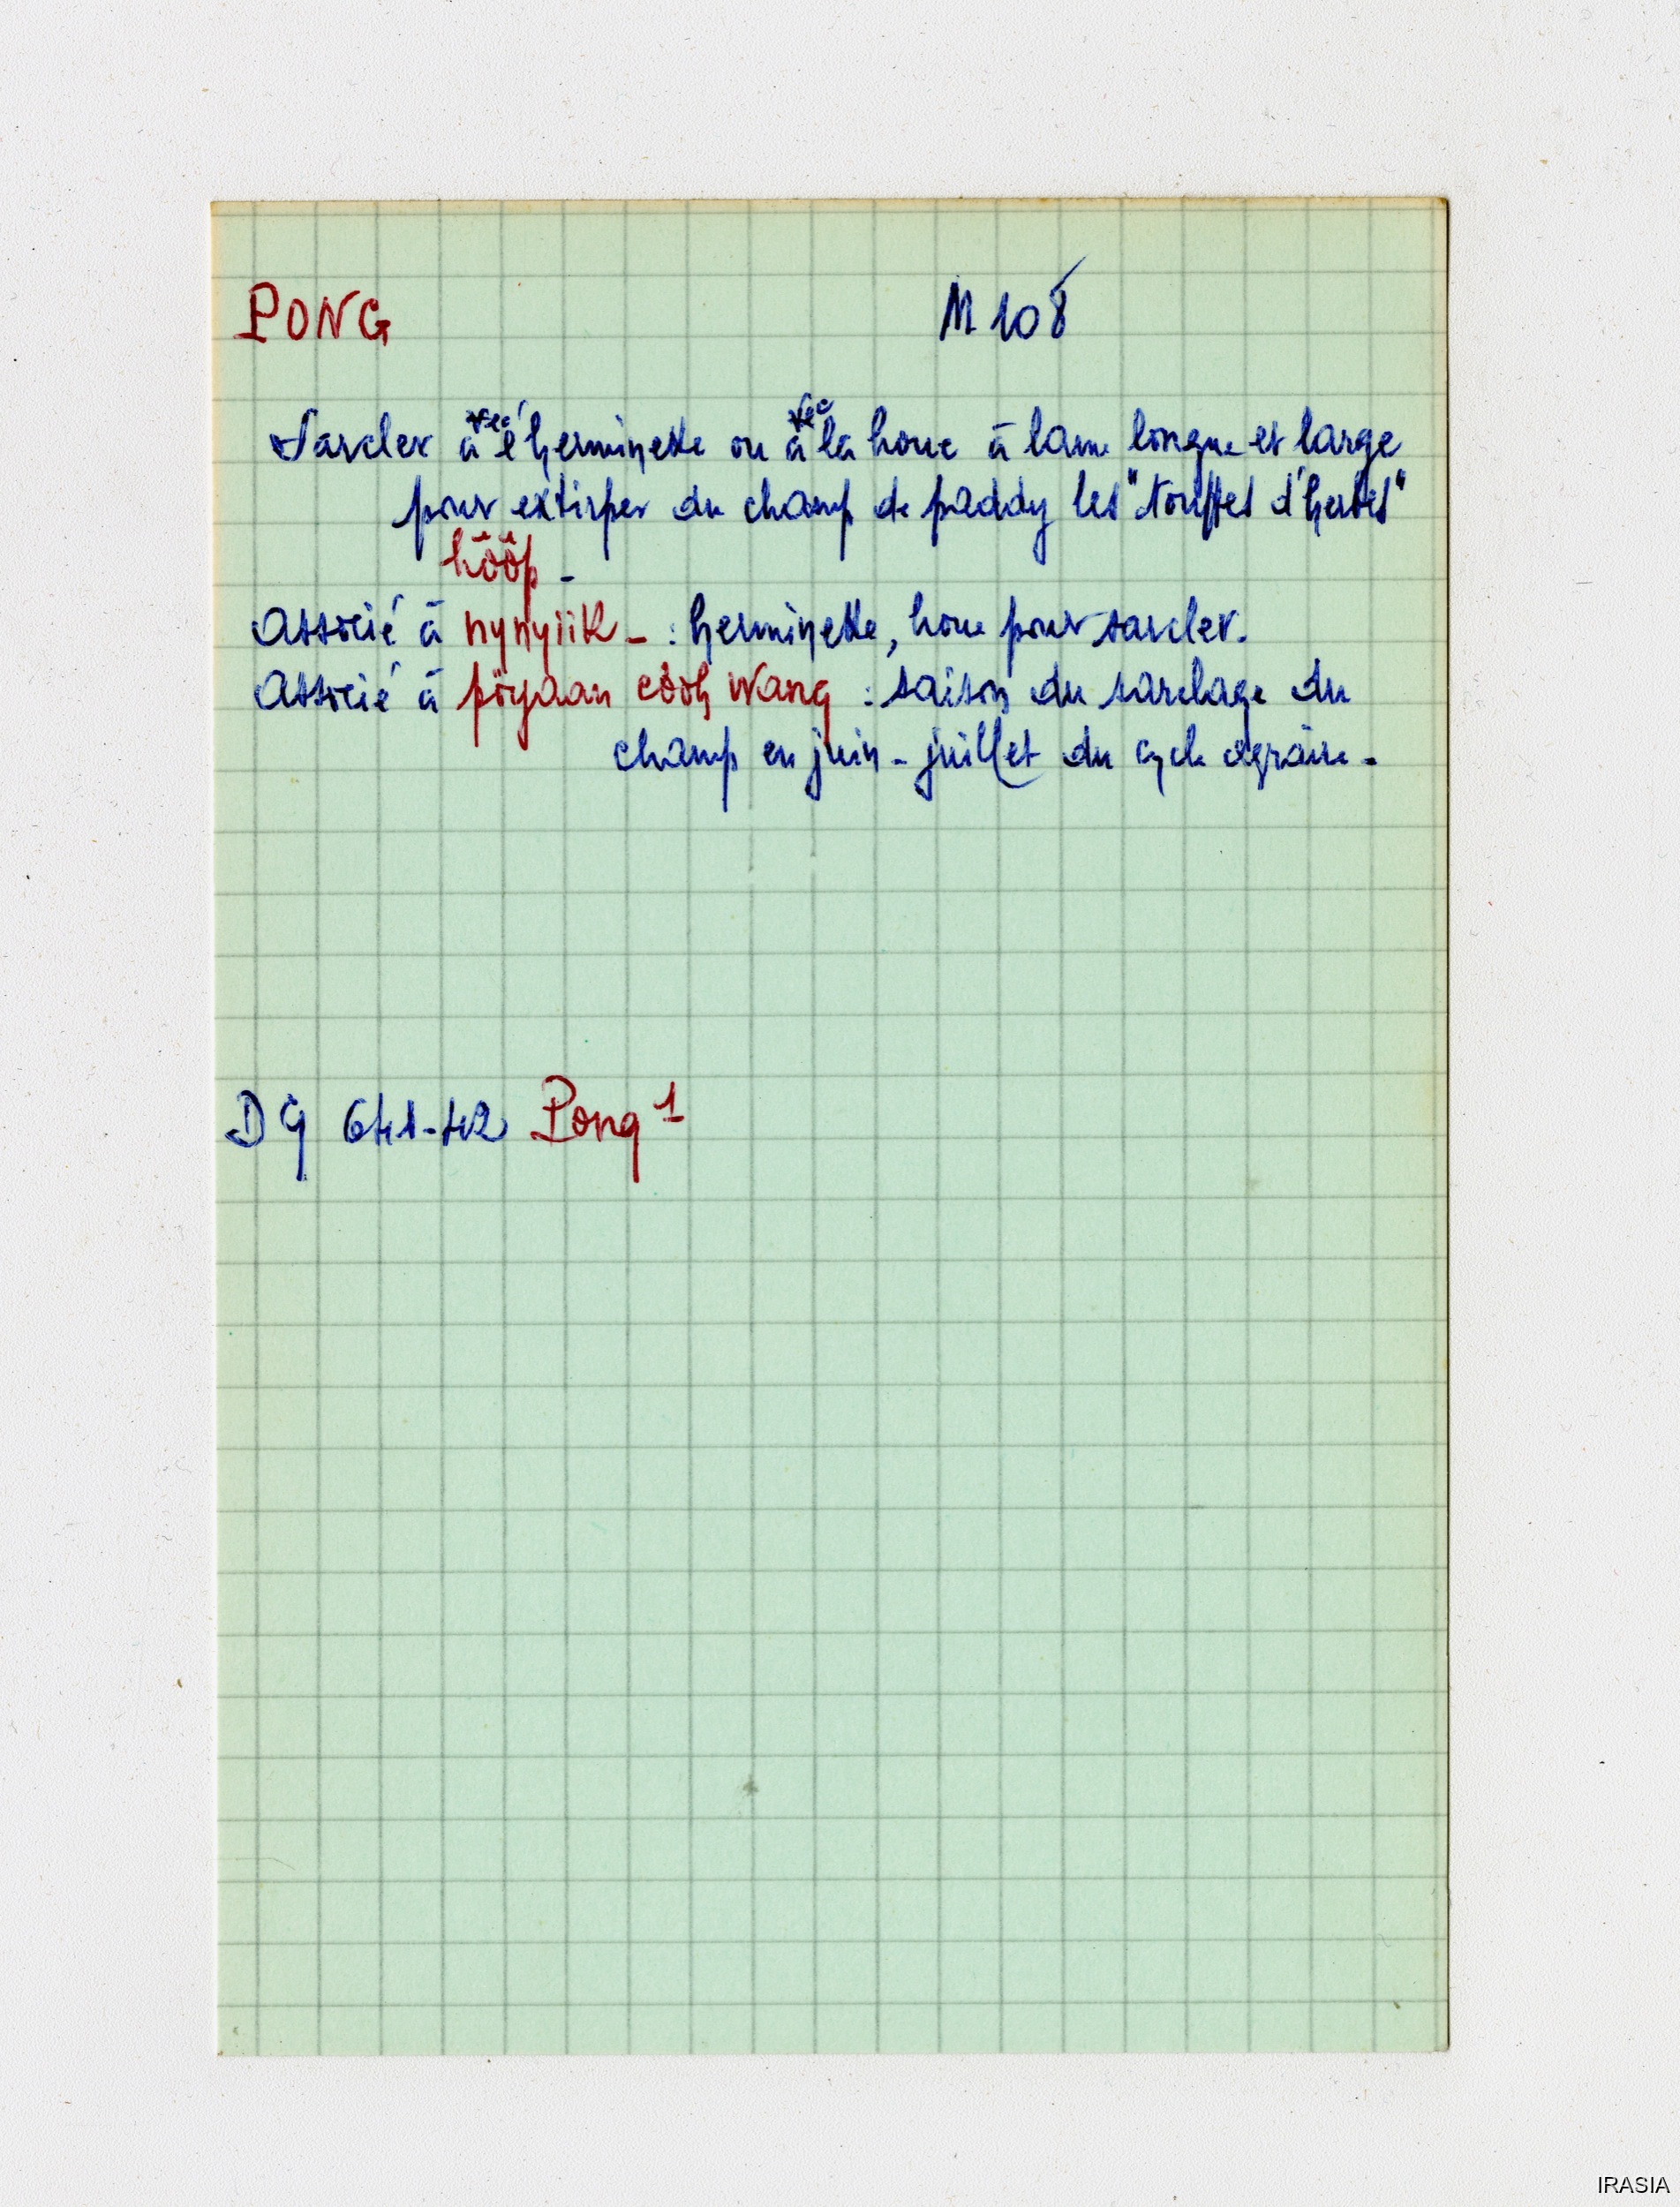 PONG M 108
Sarcler avec l'herminette ou avec la houe à lame longue et large
pour extirper du champ de paddy les "touffes d'herbes"
hôôp -
Associé à nynyiik - : herminette, houe pour sarcler.
Associé à pöyaan côôh wang : saison du sarclage du
champ en juin - juillet du cycle agraire -
DG 641-42 Pong 1
IRASIA